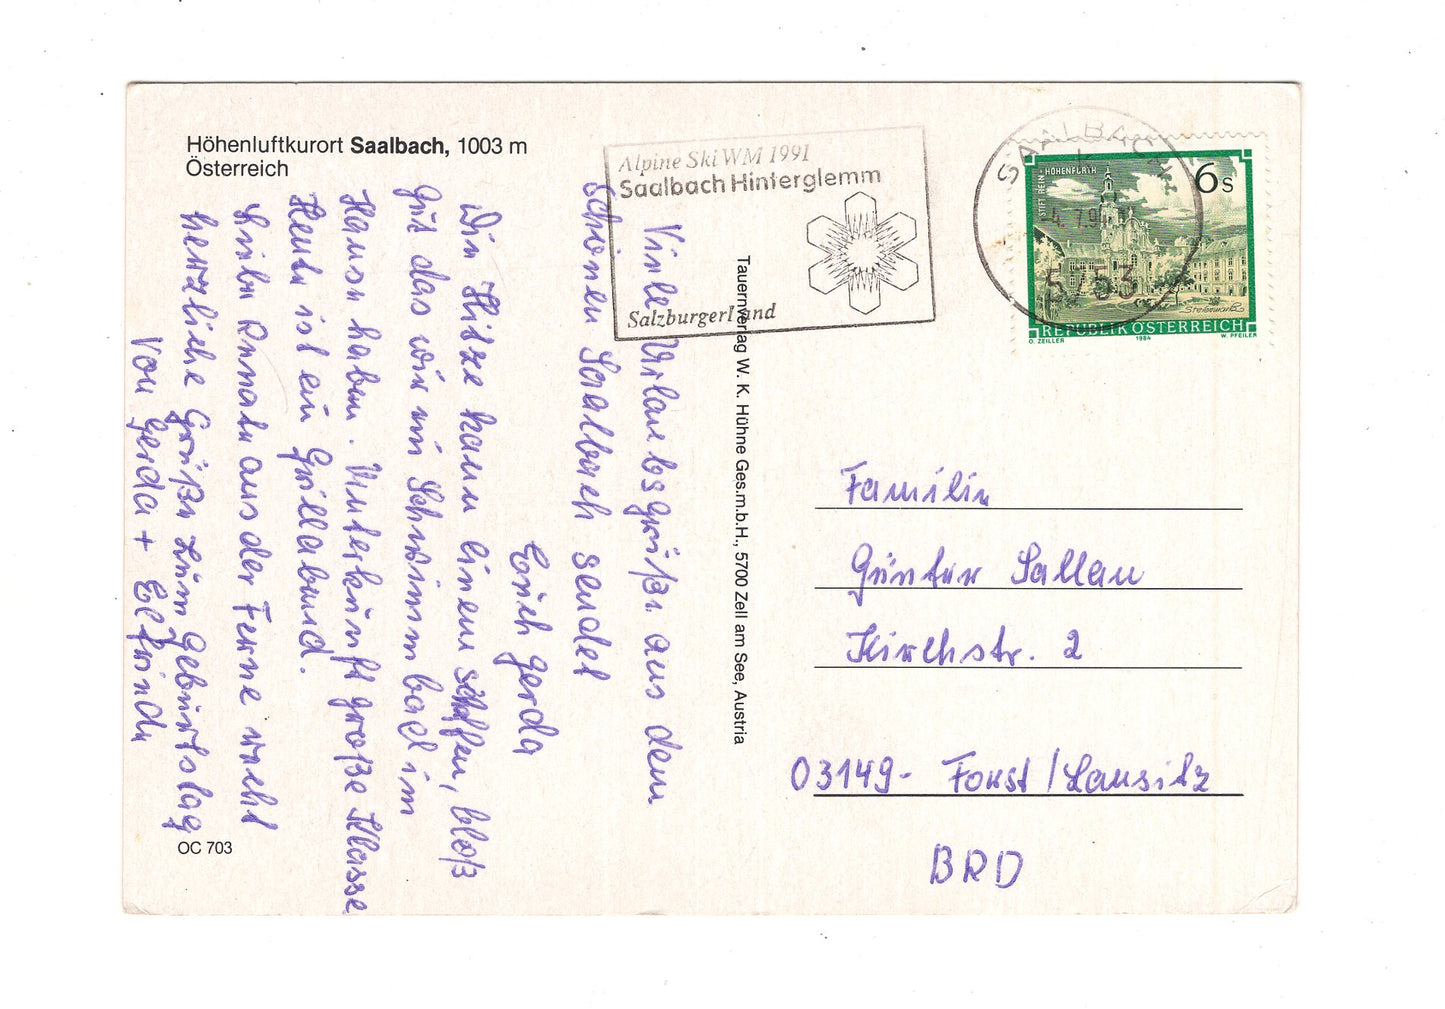 Höhenluftkurort Saalbach, 1003 m
Österreich
Alpine Ski WM 1991
Saalbach Hinterglemm
Salzburgerland
SAALBACH
5753
6s
STIFT REIN - HOHENFURTH
Steiermark
REPUBLIK ÖSTERREICH
O. ZEILLER 1984 W. PFEILER
Viele Urlaubsgrüße aus dem
schönen Saalbach sendet
Euch Gerda
Die Hitze kann einen schaffen, bloß
Gut das wir ein Schwimmbad im
Hause haben. Unterkunft große Klasse
Heute ist ein Grillabend.
Liebe Renate aus der Ferne recht
herzliche Grüße zum Geburtstag
Von Gerda + Elfriede
Tauernverlag W. K. Hühne Ges.m.b.H., 5700 Zell am See, Austria
Familie
Günter Sallau
Kirchstr. 2
03149- Forst/Lausitz
BRD
OC 703